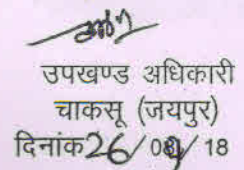 उपखण्ड अधिकारी
चाकसू (जयपुर)
दिनांक 26/ 09/ 18